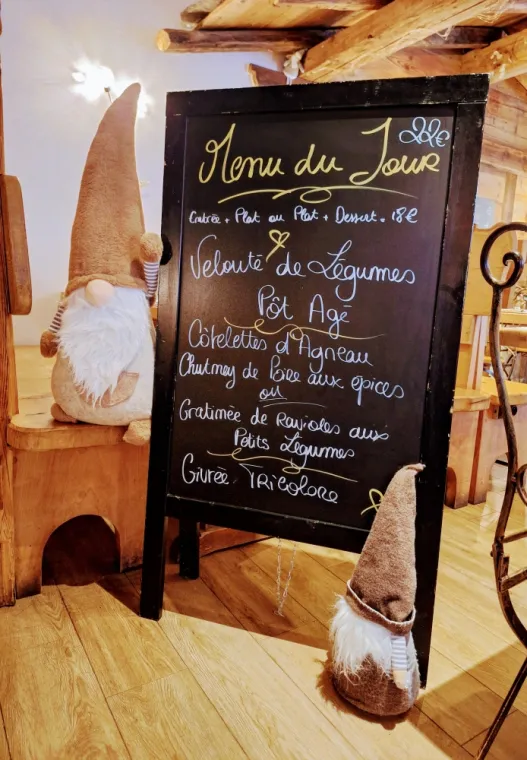 Menu du Jour 22€
Entrée + Plat ou Plat + Dessert = 18€
Velouté de Légumes
Pôt Agé
Côtelettes d'Agneau
Chutney de Poire aux épices
ou
Gratinée de Ravioles aux
Petits Légumes
Givrée Tricolore